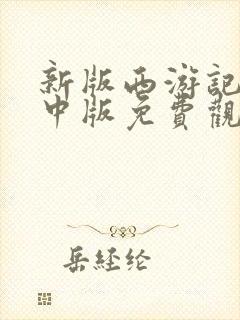 新版西游記
中版免費觀
岳経纶